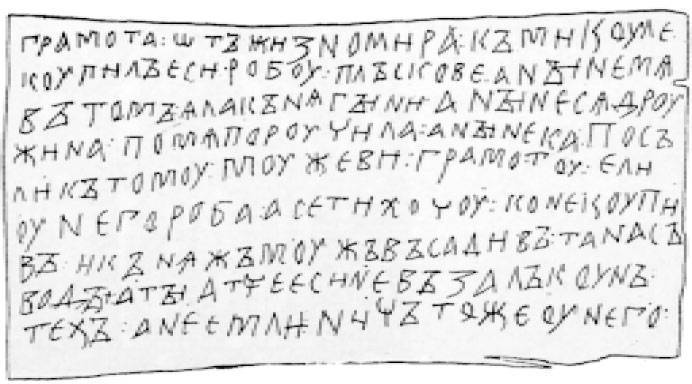 грамота : ѡтъ жизномира : къ микоуле
коупилъ еси : робоу : плъскове : а ныне мѧ
въ томъ : ѧла кънѧгыни : а ныне сѧ дроу
жина : по мѧ пороучила : а ныне ка : посъ
ли къ томоу : моужеви : грамотоу : е ли
оу него роба : а се ти хочоу : коне коупи
въ : и кънѧжъ моужъ въсадивъ : та на съ
воды : а ты атче еси не възалъ коунъ :
техъ : а не емли : ничъто же оу него :